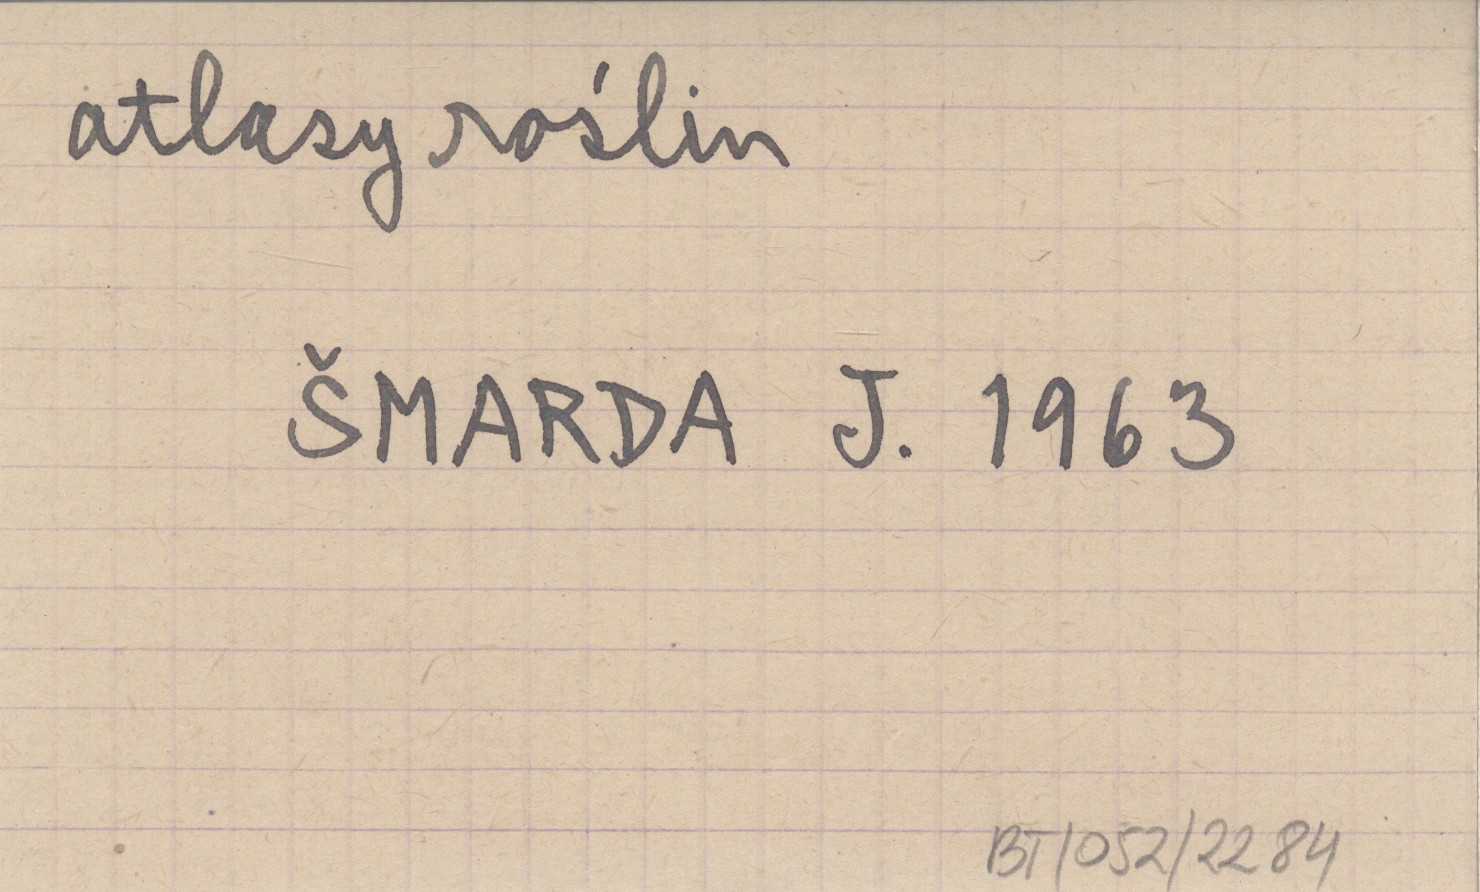 atlasy roślin
ŠMARDA J. 1963
BT/052/2284